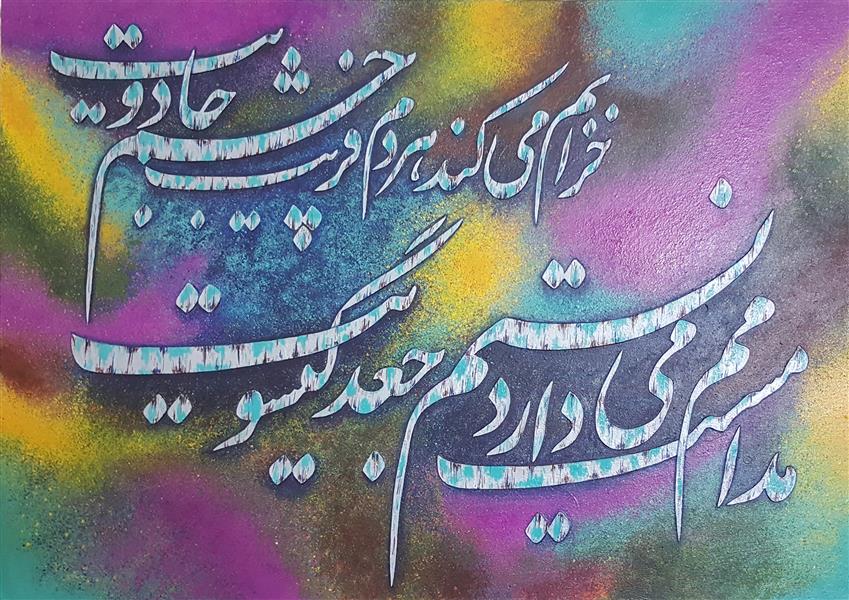 خرابم می کند هر دم فریب چشم جادویت
مدامم مست می دارد نسیم جعد گیسویت